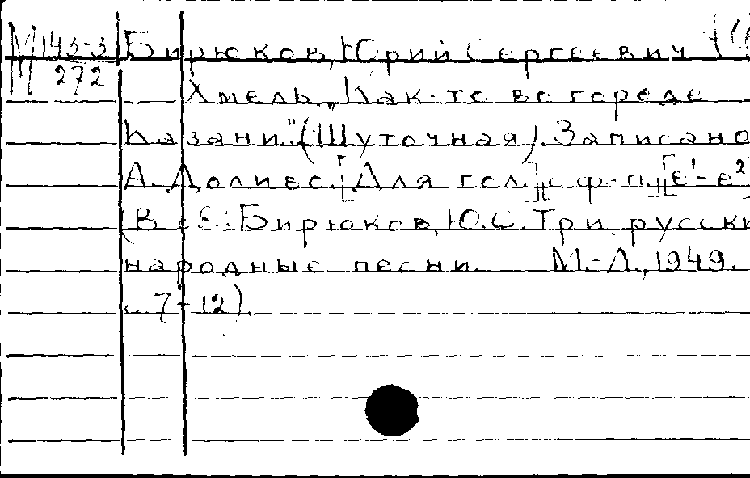 М 143-3 Бирюков, Юрий Сергеевич
М 272
Хмель. „Как-то во городе
Казани." (Шуточная). Записано
А. Доливо. [Для гол.] с ф-п. [e¹-e²
(В сб: Бирюков, Ю.С. Три русски
народные песни. М.-Л., 1949.
с. 7-12).